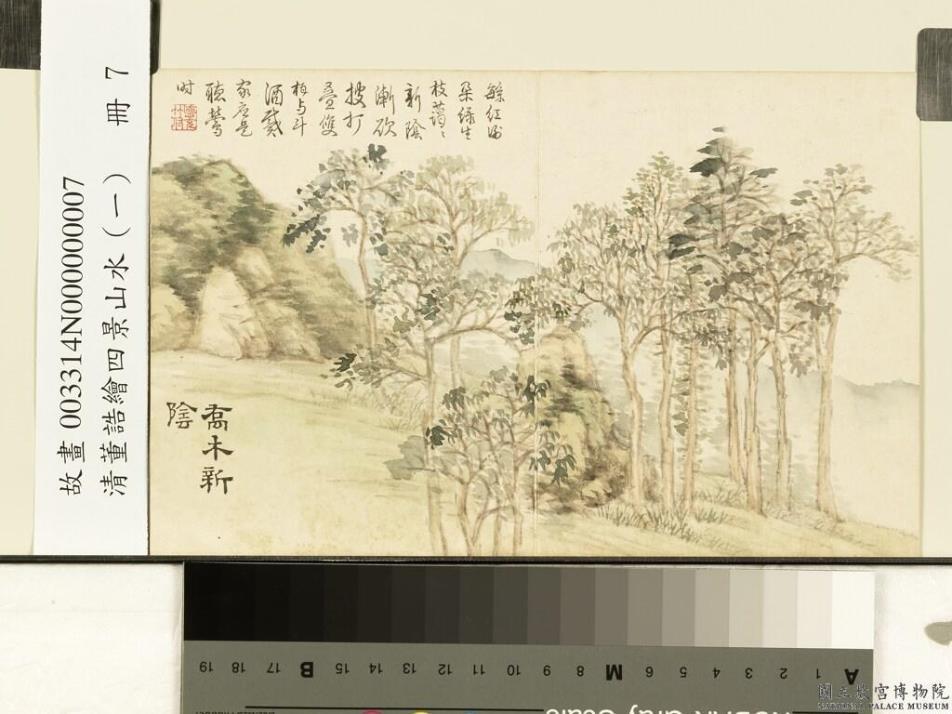 故畫 003314N000000007
清董誥繪四景山水(一) 冊 7
緐紅謝
朶綠生
枝藹〻
新陰
漸欲
披打
疊雙
柑与斗
酒戴
家应是
聽鶯
时
喬木新
陰
19 18 17 B 15 14 13 12 11 10 9 8 M 6 5 4 3 2 1 A
國立故宮博物院
NATIONAL PALACE MUSEUM